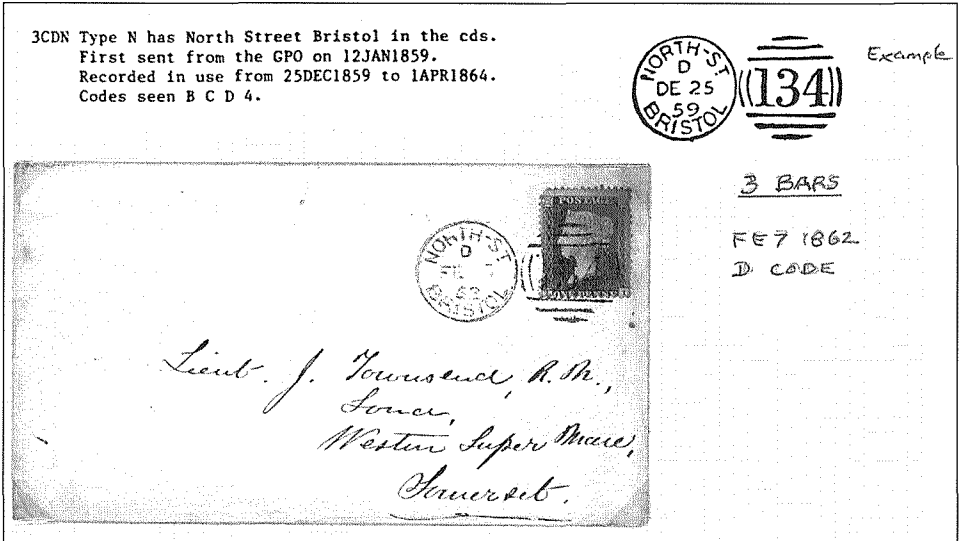 3CDN Type N has North Street Bristol in the cds.
First sent from the GPO on 12JAN1859.
Recorded in use from 25DEC1859 to 1APR1864.
Codes seen B C D 4.
NORTH-ST
D
DE 25
59
BRISTOL
134
Example
3 BARS
FE 7 1862
D CODE
POSTAGE
NORTH-ST
D
BRISTOL
Lieut. J. Townsend, R. M.,
Weston Super Mare,
Somerset.